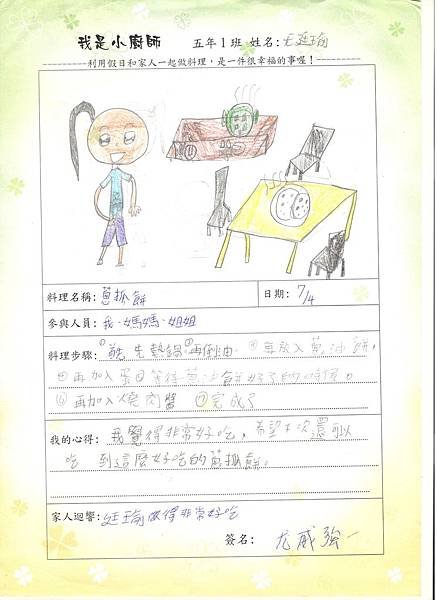 我是小廚師 五年1班 姓名:尤廷瑜
利用假日和家人一起做料理，是一件很幸福的事喔！
料理名稱:蔥抓餅 日期:7/4
參與人員:我、媽媽、姐姐
料理步驟:①先熱鍋②再倒油 ③再放入蔥油餅,
再加入蛋
再加入燒肉醬 完成了
我的心得:我覺得非常好吃,希望下次還可以
吃 到這麼好吃的蔥抓餅。
家人迴響:廷瑜做得非常好吃
簽名: 尤威強